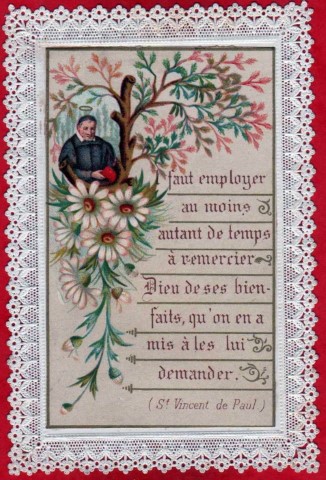 faut employer
au moins
autant de temps
à remercier
Dieu de ses bien-
faits, qu'on en a
mis à les lui
demander.
(St Vincent de Paul)